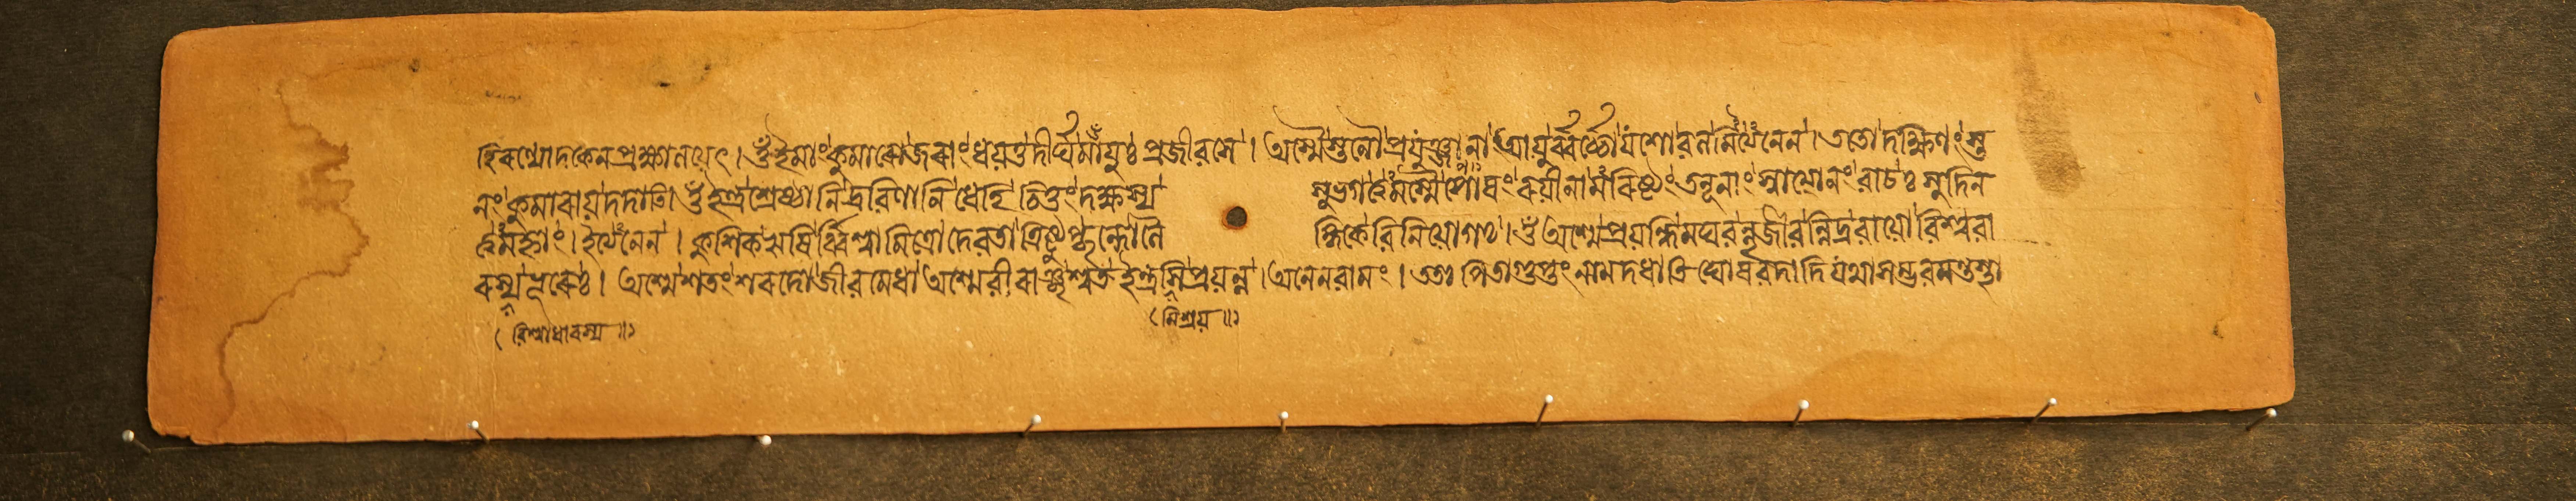 হিরণ্যোদকেনপ্রক্ষালয়েৎ। ওঁইমাংকুমারোজরাংধয়তুদীর্ঘমায়ুঃপ্রজীবসে। অস্মৈস্তনৌপ্রযুঞ্জানাআয়ুর্ব্বর্চ্চোযশোবলমিত্যনেন। ততোদক্ষিণংস্ত
নংকুমারায়দদাতি। ওঁইন্দ্রশ্রেষ্ঠানিদ্রবিণানিধেহিচিত্তিংদক্ষস্য সুভগত্বমস্মৈপোষংরয়ীনামরিষ্টিংতনূনাংস্বাদ্মানংবাচঃসুদিন
ত্বমহ্নাং। ইত্যনেন। কুশিকঋষির্ব্বিশ্বামিত্রোদেবতাত্রিষ্টুপ্ছন্দো বিনিয়োগঃ। ওঁঅস্মেপ্রয়ন্ধিমঘবন্নৃজীষিন্নিন্দ্ররায়োবিশ্ববা
রস্যভূরেঃ। অস্মেশতংশরদোজীবসেধাঅস্মেবীরাঞ্ছশ্বতইন্দ্র। অনেনবামং। ততঃপিতাগুপ্তংনামদধাতিঘোষবদাদি
(বিশ্বাধারস্য ॥)
(মিশ্রয় ॥)